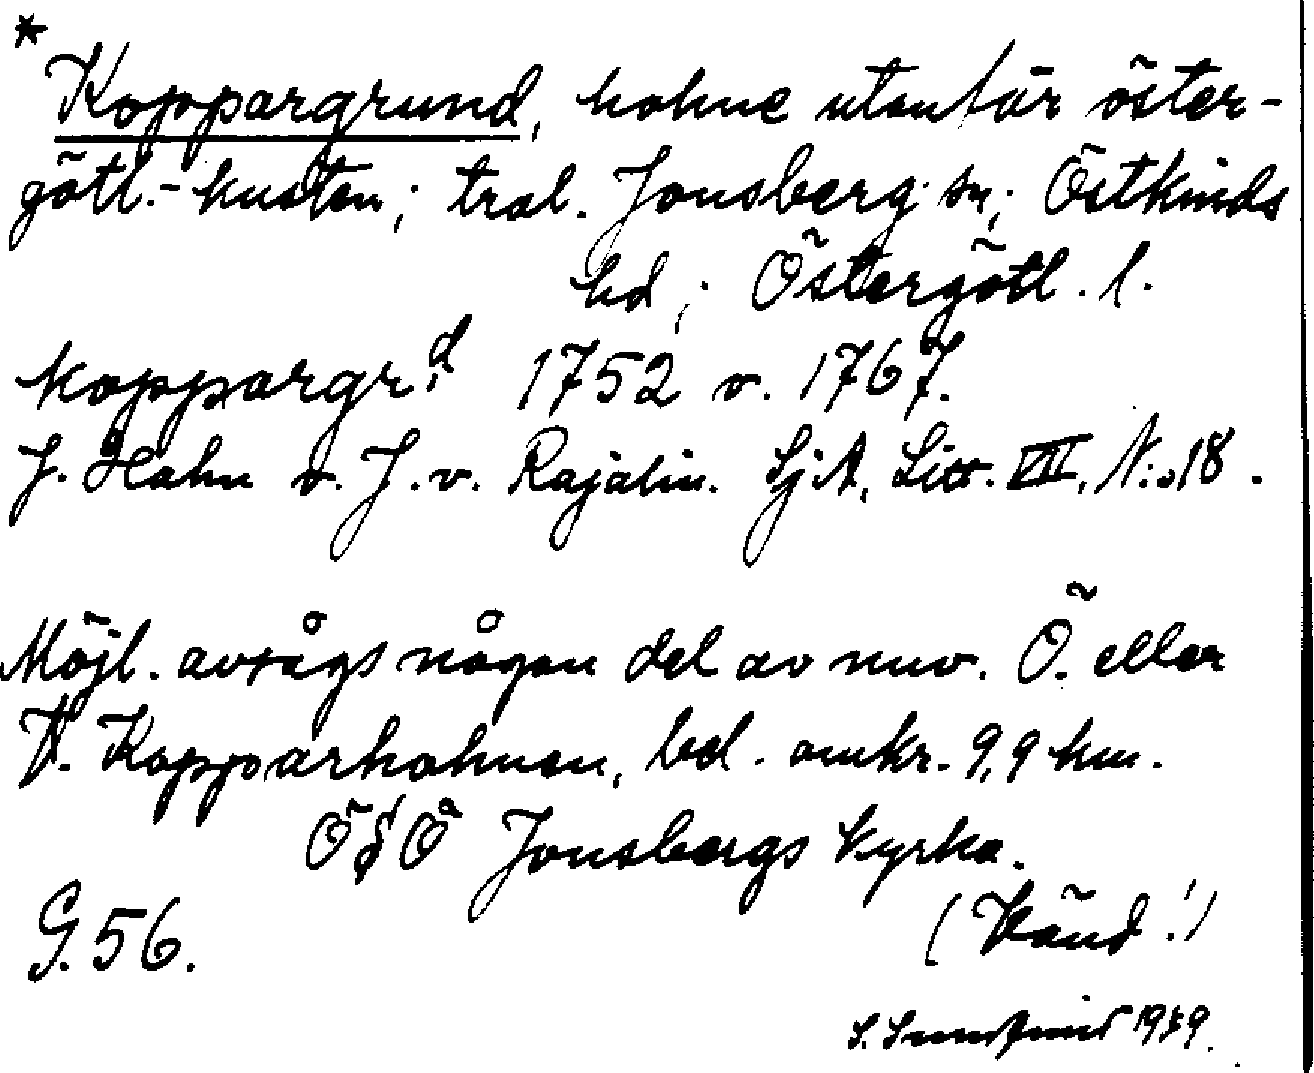 *
Koppargrund, holme utanför öster-
götl.-kusten; tral. Jonsberg sn; Östkinds
hd; Östergötl. l.
koppargr:d 1752 o. 1767.
J. Hahn o. J. v. Rajalin. SjA, Litt. VIII, N:o 18.
Möjl. avsågs någon del av nuv. Ö. eller
V. Kopparholmen, bel. omkr. 9,9 km.
ÖSÖ Jonsbergs kyrka.
G. 56. (Vänd!)
S. 1939.